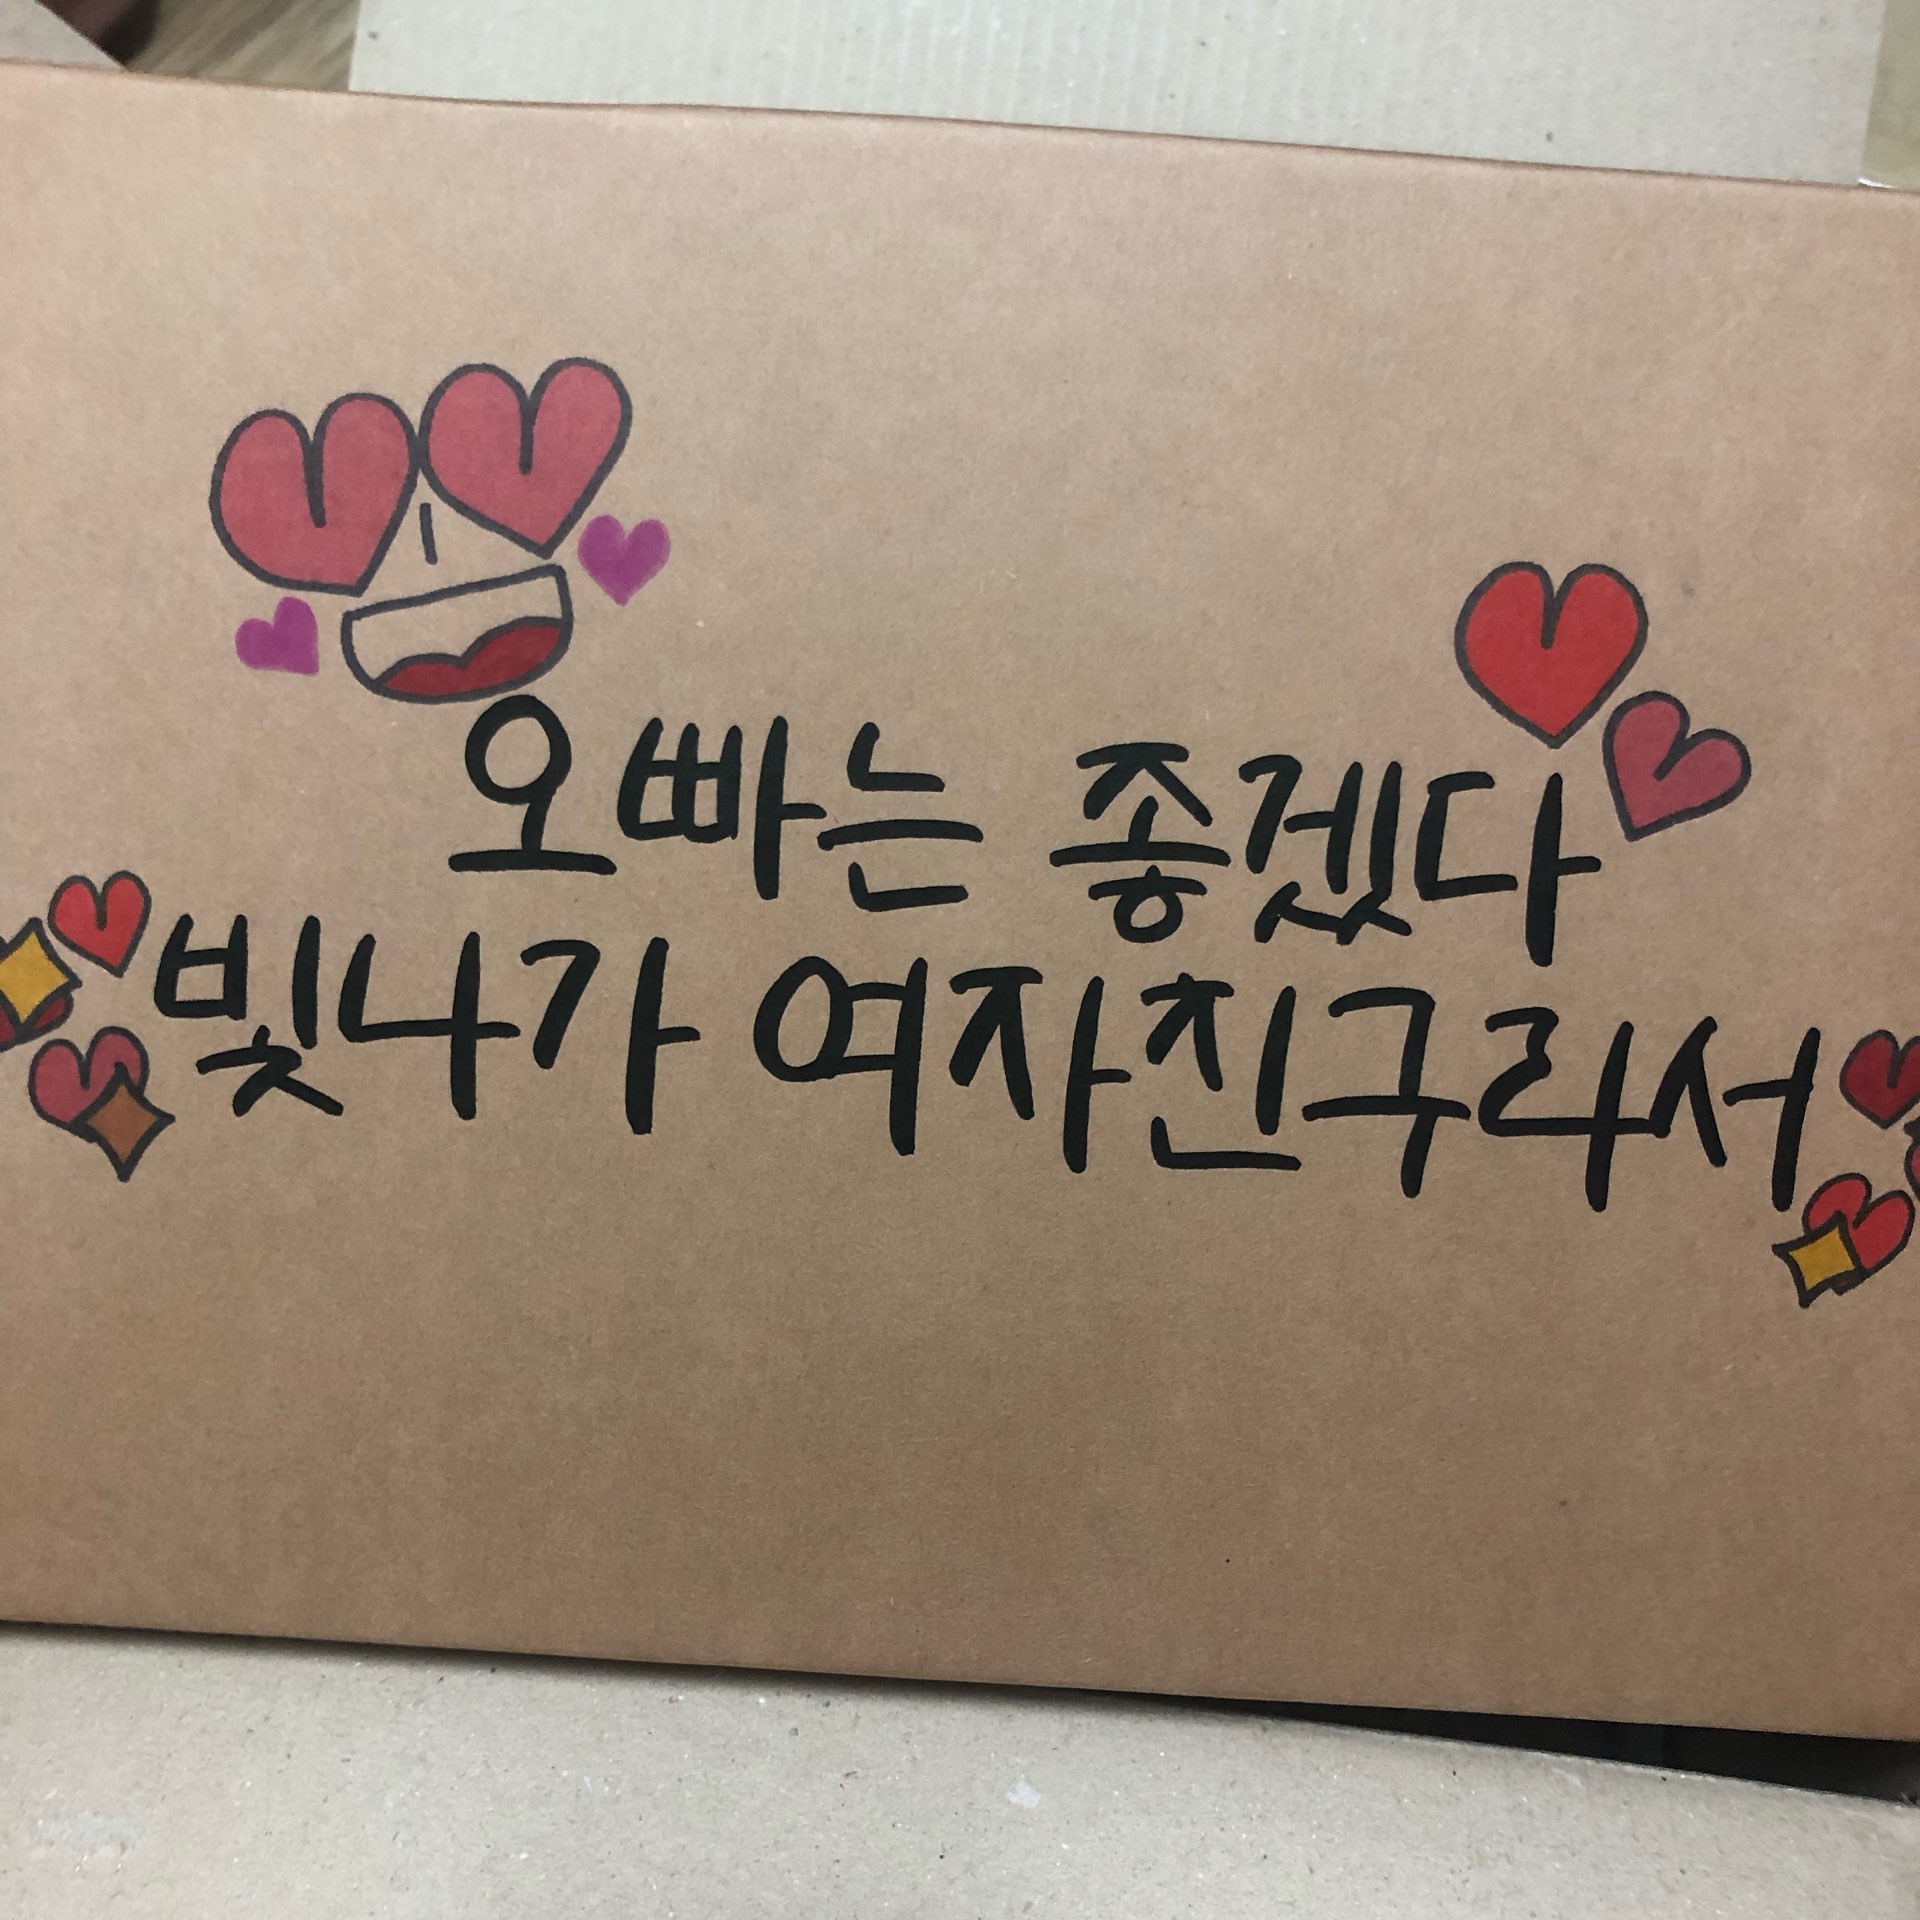 오빠는 좋겠다
빛나가 여자친구라서